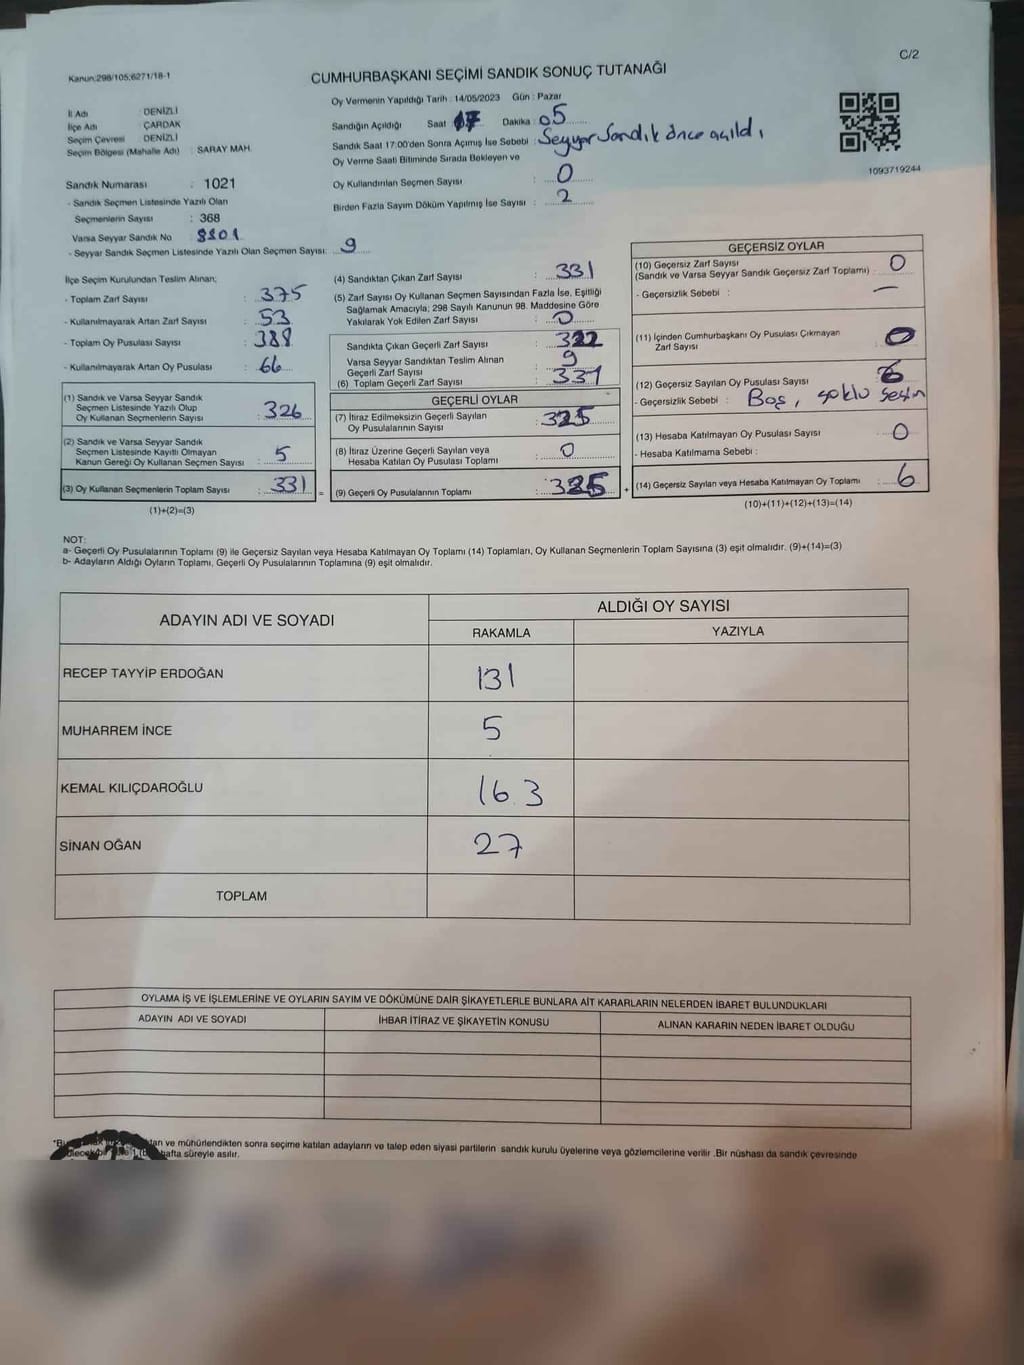 C/2
Kanun:298/105;6271/18-1
CUMHURBAŞKANI SEÇİMİ SANDIK SONUÇ TUTANAĞI
Oy Vermenin Yapıldığı Tarih : 14/05/2023 Gün : Pazar
İl Adı DENİZLİ
İlçe Adı ÇARDAK
Seçim Çevresi DENİZLİ
Seçim Bölgesi (Mahalle Adı) : SARAY MAH.
Sandığın Açıldığı Saat 17 Dakika : 05
Sandık Saat 17:00'den Sonra Açımış İse Sebebi : Seyyar Sandık önce açıldı.
Oy Verme Saati Bitiminde Sırada Bekleyen ve
Oy Kullandırılan Seçmen Sayısı : 0
Birden Fazla Sayım Döküm Yapılmış İse Sayısı : 2
1093719244
Sandık Numarası : 1021
- Sandık Seçmen Listesinde Yazılı Olan
Seçmenlerin Sayısı : 368
Varsa Seyyar Sandık No
- Seyyar Sandık Seçmen Listesinde Yazılı Olan Seçmen Sayısı: 9
İlçe Seçim Kurulundan Teslim Alınan;
- Toplam Zarf Sayısı : 375
- Kullanılmayarak Artan Zarf Sayısı : 53
- Toplam Oy Pusulası Sayısı : 388
- Kullanılmayarak Artan Oy Pusulası : 66
(1) Sandık ve Varsa Seyyar Sandık
Seçmen Listesinde Yazılı Olup
Oy Kullanan Seçmenlerin Sayısı : 326
(2) Sandık ve Varsa Seyyar Sandık
Seçmen Listesinde Kayıtlı Olmayan
Kanun Gereği Oy Kullanan Seçmen Sayısı : 5
(3) Oy Kullanan Seçmenlerin Toplam Sayısı : 331 =
(1)+(2)=(3)
(4) Sandıktan Çıkan Zarf Sayısı : 331
(5) Zarf Sayısı Oy Kullanan Seçmen Sayısından Fazla İse, Eşitliği
Sağlamak Amacıyla; 298 Sayılı Kanunun 98. Maddesine Göre
Yakılarak Yok Edilen Zarf Sayısı : 0
Sandıkta Çıkan Geçerli Zarf Sayısı : 322
Varsa Seyyar Sandıktan Teslim Alınan
Geçerli Zarf Sayısı : 9
(6) Toplam Geçerli Zarf Sayısı : 331
GEÇERLİ OYLAR
(7) İtiraz Edilmeksizin Geçerli Sayılan
Oy Pusulalarının Sayısı : 325
(8) İtiraz Üzerine Geçerli Sayılan veya
Hesaba Katılan Oy Pusulası Toplamı : 0
(9) Geçerli Oy Pusulalarının Toplamı : 325 +
GEÇERSİZ OYLAR
(10) Geçersiz Zarf Sayısı
(Sandık ve Varsa Seyyar Sandık Geçersiz Zarf Toplamı) : 0
- Geçersizlik Sebebi : —
(11) İçinden Cumhurbaşkanı Oy Pusulası Çıkmayan
Zarf Sayısı : 0
(12) Geçersiz Sayılan Oy Pusulası Sayısı : 6
- Geçersizlik Sebebi : Boş,
(13) Hesaba Katılmayan Oy Pusulası Sayısı : 0
- Hesaba Katılmama Sebebi :
(14) Geçersiz Sayılan veya Hesaba Katılmayan Oy Toplamı : 6
(10)+(11)+(12)+(13)=(14)
NOT:
a- Geçerli Oy Pusulalarının Toplamı (9) ile Geçersiz Sayılan veya Hesaba Katılmayan Oy Toplamı (14) Toplamları, Oy Kullanan Seçmenlerin Toplam Sayısına (3) eşit olmalıdır. (9)+(14)=(3)
b- Adayların Aldığı Oyların Toplamı, Geçerli Oy Pusulalarının Toplamına (9) eşit olmalıdır.
ADAYIN ADI VE SOYADI ALDIĞI OY SAYISI
RAKAMLA YAZIYLA
RECEP TAYYİP ERDOĞAN 131
MUHARREM İNCE 5
KEMAL KILIÇDAROĞLU 16.3
SİNAN OĞAN 27
TOPLAM
OYLAMA İŞ VE İŞLEMLERİNE VE OYLARIN SAYIM VE DÖKÜMÜNE DAİR ŞİKAYETLERLE BUNLARA AİT KARARLARIN NELERDEN İBARET BULUNDUKLARI
ADAYIN ADI VE SOYADI İHBAR İTİRAZ VE ŞİKAYETİN KONUSU ALINAN KARARIN NEDEN İBARET OLDUĞU
ve mühürlendikten sonra seçime katılan adayların ve talep eden siyasi partilerin sandık kurulu üyelerine veya gözlemcilerine verilir .Bir nüshası da sandık çevresinde
hafta süreyle asılır.